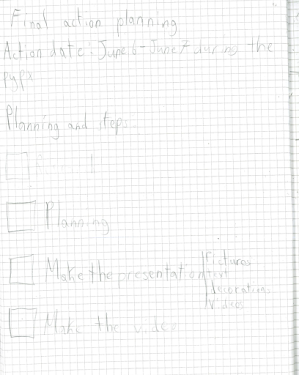 Final action planning
Action date: June 6-June 7 during the
pypx
Planning and steps
Planning
Make the presentation
Pictures
text
decoration
Videos
Make the video